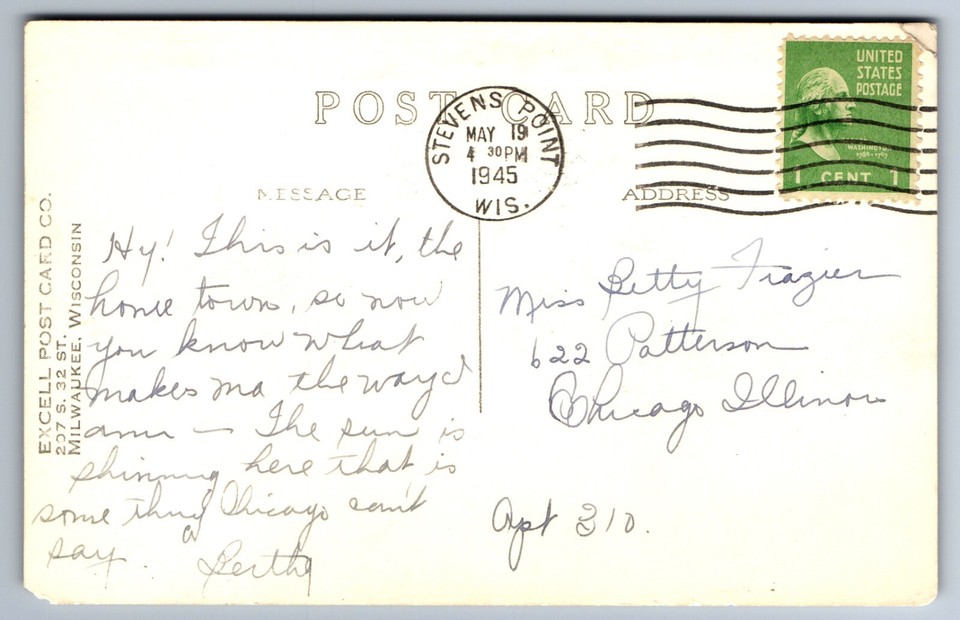 POST CARD
UNITED
STATES
POSTAGE
WASHINGTON
1 CENT 1
STEVENS POINT
MAY 19
4 30 PM
1945
WIS.
MESSAGE
ADDRESS
EXCELL POST CARD CO.
207 S. 32 ST.
MILWAUKEE, WISCONSIN
Hy! This is it, the
home town, so now
you know what
makes ma the way I
am — The sun is
shinning here that is
some thing Chicago cant
say.
Miss Betty Frazier
622 Patterson
Chicago Illinois
Apt 310.